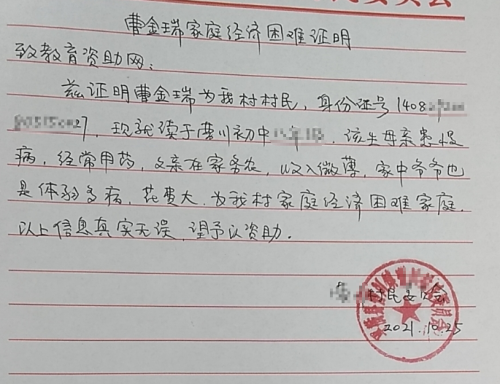 曹金瑞家庭经济困难证明
致教育资助网:
兹证明曹金瑞为我村村民,身份证号1408
27,现就读于 初中 ,该生母亲患慢
病,经常用药,父亲在家务农,收入微薄,家中爷爷也
是体弱多病,花费大,为我村家庭经济困难家庭.
以上信息真实无误,望予以资助.
村民委
2021.10.25